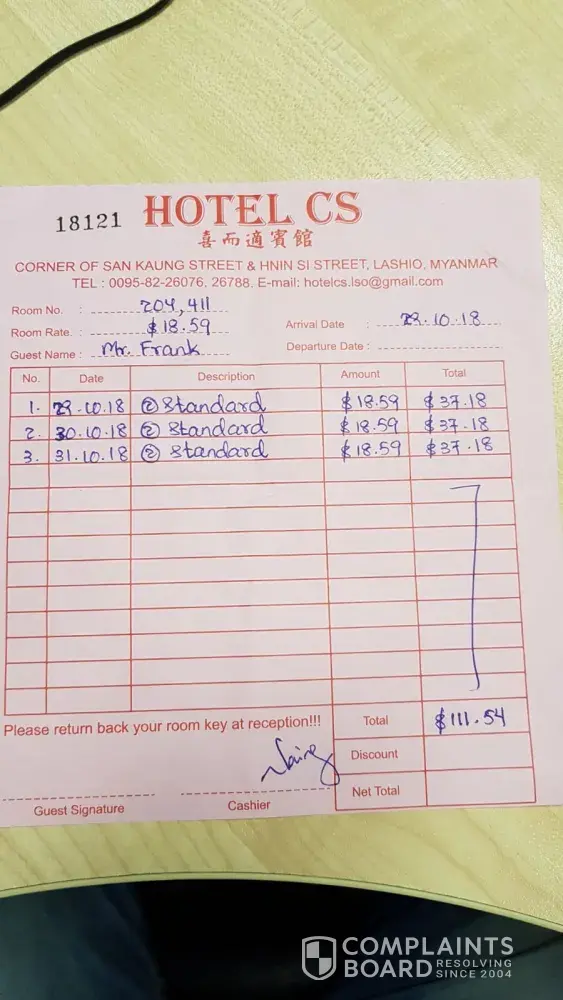 18121 HOTEL CS
喜而適賓館
CORNER OF SAN KAUNG STREET & HNIN SI STREET, LASHIO, MYANMAR
TEL : 0095-82-26076, 26788. E-mail: hotelcs.lso@gmail.com
Room No. : 204, 411
Room Rate. : $18.59 Arrival Date : 29.10.18
Guest Name : Mr. Frank Departure Date :
No. Date Description Amount Total
1. 29.10.18 ② Standard $18.59 $37.18
2. 30.10.18 ② Standard $18.59 $37.18
3. 31.10.18 ② Standard $18.59 $37.18
Please return back your room key at reception!!! Total $111.54
Discount
Net Total
Guest Signature Cashier
COMPLAINTS
BOARD RESOLVING
SINCE 2004